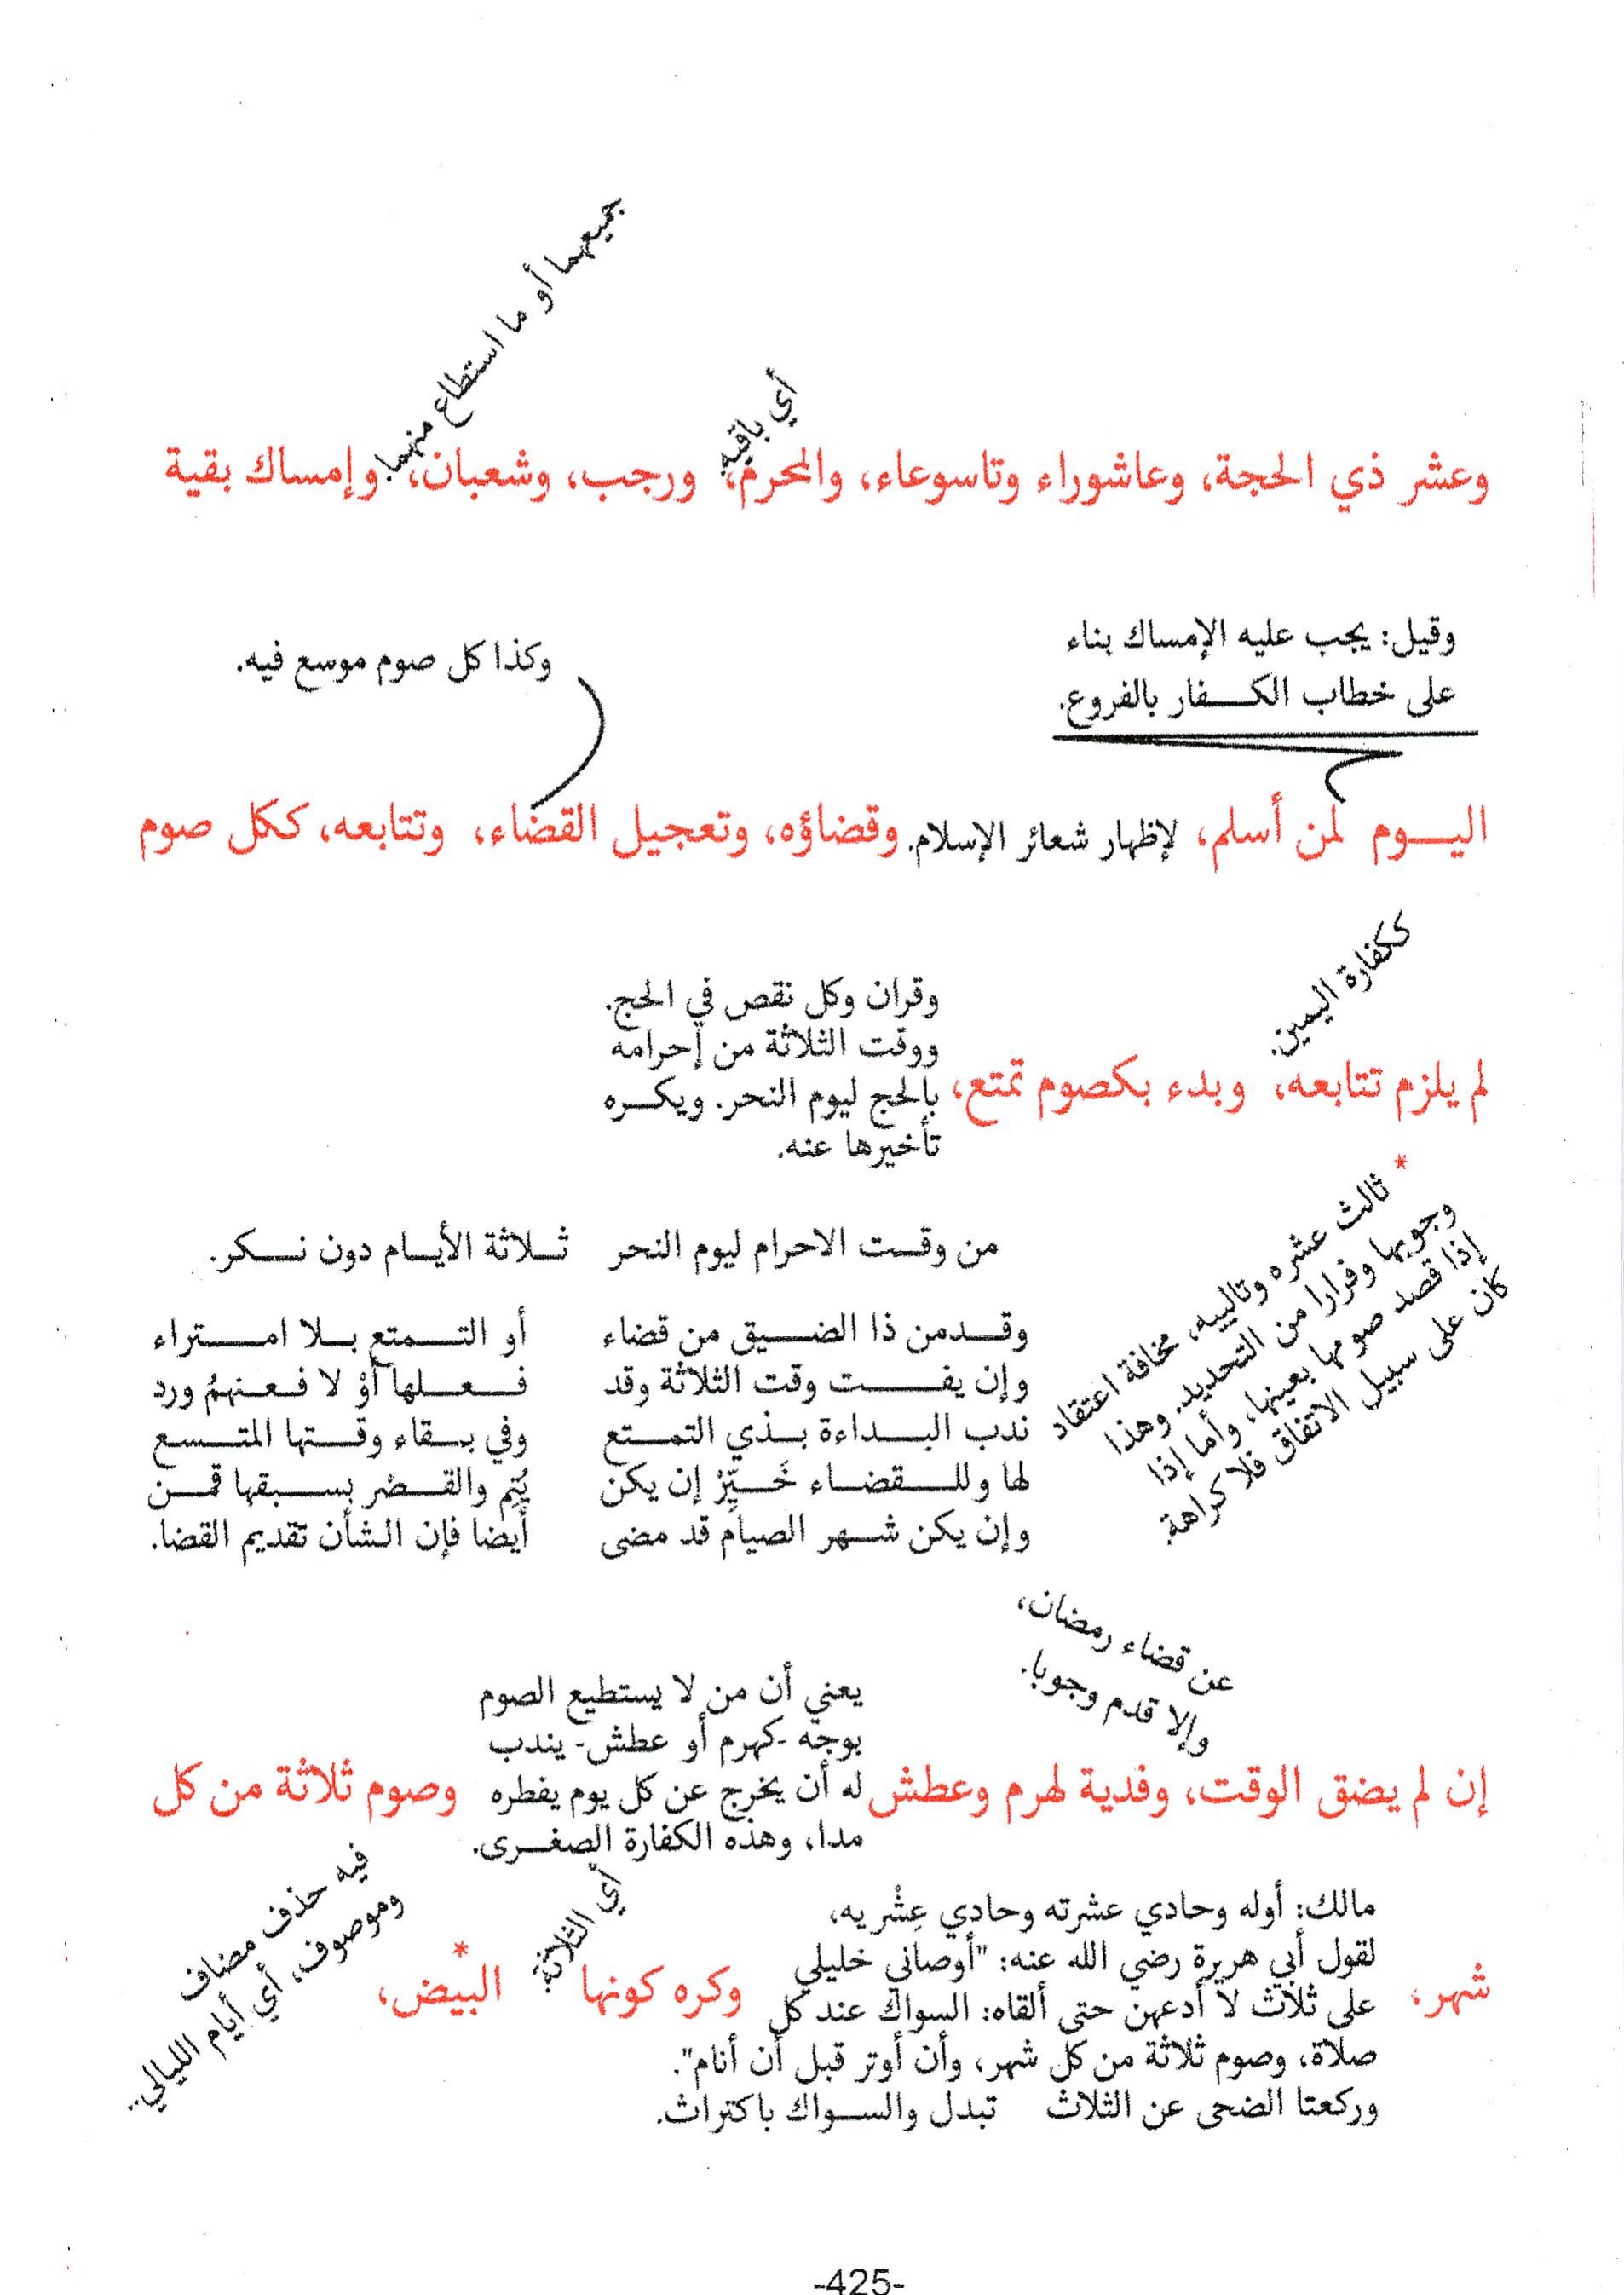 جميعهما أو ما استطاع منهما.
أي باقيه.
وعشر ذي الحجة، وعاشوراء وتاسوعاء، والمحرم، ورجب، وشعبان، وإمساك بقية
وقيل: يجب عليه الإمساك بناء
على خطاب الكفار بالفروع.
وكذا كل صوم موسع فيه.
اليوم لمن أسلم، لإظهار شعائر الإسلام. وقضاؤه، وتعجيل القضاء، وتتابعه، ككل صوم
ككفارة اليمين.
لم يلزم تتابعه، وبدء بكصوم تمتع،
وقران وكل نقص في الحج.
ووقت الثلاثة من إحرامه
بالحج ليوم النحر. ويكره
تأخيرها عنه.
* ثالث عشره وتالييه، مخافة اعتقاد
وجوبها وفرارا من التحديد. وهذا
إذا قصد صومها بعينها، وأما إذا
كان على سبيل الاتفاق فلا كراهة.
من وقت الاحرام ليوم النحر ثلاثة الأيام دون نكر.
وقدمن ذا الضيق من قضاء أو التمتع بلا امتراء
وإن يفت وقت الثلاثة وقد فعلها أوْ لا فعنهمُ ورد
ندب البداءة بذي التمتع وفي بقاء وقتها المتسع
لها وللقضاء خَيِّرْ إن يكن يُتِم والقضْر بسبقها قمن
وإن يكن شهر الصيام قد مضى أيضا فإن الشأن تقديم القضا.
عن قضاء رمضان،
وإلا قدم وجوبا.
إن لم يضق الوقت، وفدية لهرم وعطش
يعني أن من لا يستطيع الصوم
بوجه -كهرم أو عطش- يندب
له أن يخرج عن كل يوم يفطره
مدا، وهذه الكفارة الصغرى.
وصوم ثلاثة من كل
شهر،
مالك: أوله وحادي عشرته وحادي عِشْريه،
لقول أبي هريرة رضي الله عنه: "أوصاني خليلي
على ثلاث لا أدعهن حتى ألقاه: السواك عند كل
صلاة، وصوم ثلاثة من كل شهر، وأن أوتر قبل أن أنام".
وركعتا الضحى عن الثلاث تبدل والسواك باكتراث.
وكره كونها
أي الثلاثة.
البيض، *
فيه حذف مضاف
وموصوف، أي أيام الليالي..
-425-